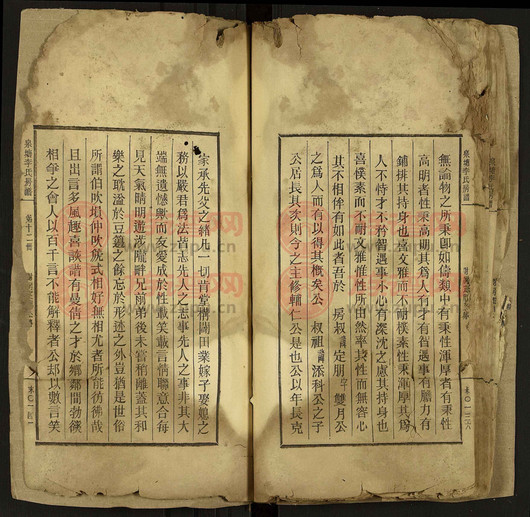 無論物之所秉即如儔類中有秉性渾厚者有秉性
高明者性秉高明其為人有才有智遇事有膽力有
鋪排其持身也盛文雅而不耐樸素性秉渾厚其為
人不恃才不矜智遇事不小心有深沈之處其持身也
喜樸素而不耐文雅惟性所由然率其性而無容心
其不相侔有如此者吾於 房叔 定朋字雙月公
之為人而有以得其概矣公 叔祖 添科公之子
公居長其次則今之主修輔仁公是也公以年長克
家承先父之緒凡一切肯堂構闢田業嫁子娶媳之
務以嚴君為法皆志先人之志事先人之事非其大
端無遺憾與而友愛成於性載笑載言情聯意合每
見天氣晴明遊涉隴畔兄前弟後未嘗稍離蓋其和
樂之耽溢於豆籩之餘忘於形迹之外豈猶是世俗
所謂伯吹塤仲吹篪式相好無相尤者所能彷彿哉
且出言多風趣喜談諧有曼倩之才於鄉鄰間勃谿
相爭之會人以百千言不能解釋者公却以數言笑
泉塘李氏房譜
第十二冊
泉塘李氏房譜